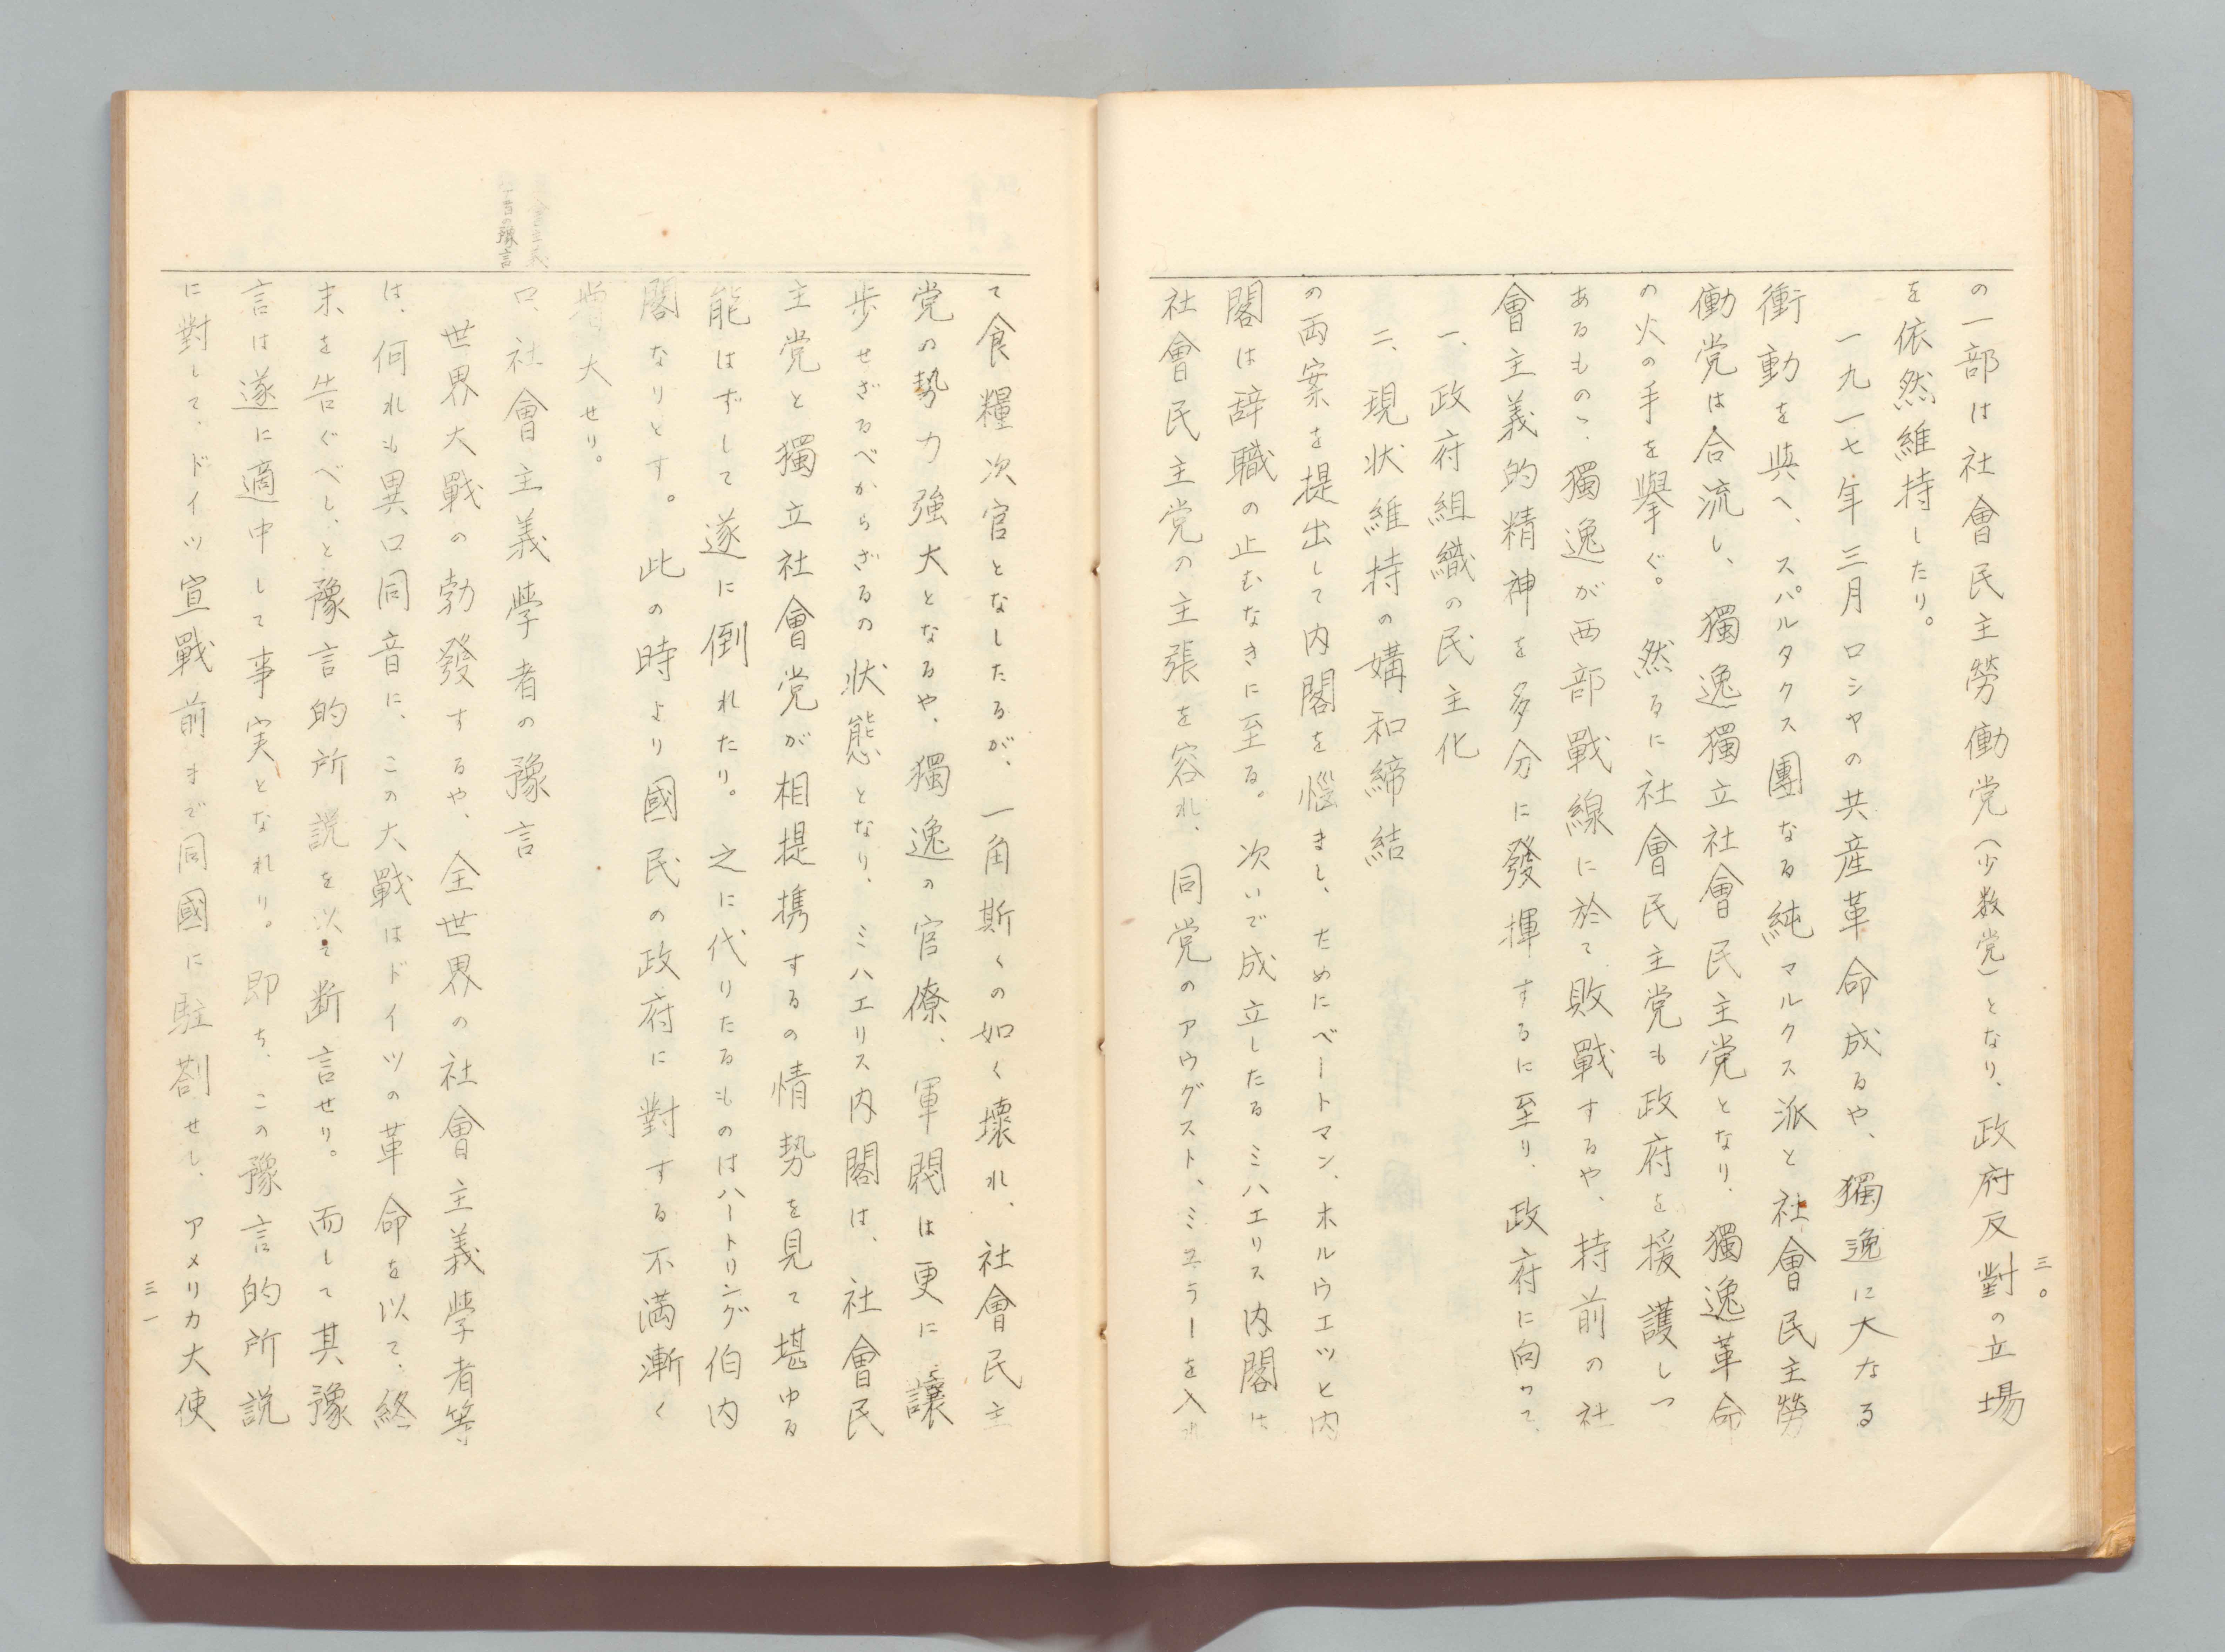 の一部は社會民主勞働党(少数党)となり、政府反對の立場
を依然維持したり。
一九一七年三月ロシヤの共産革命成るや、獨逸に大なる
衝動を與へ、スパルタクス團なる純マルクス派と社會民主勞
働党は合流し、獨逸獨立社會民主党となり、獨逸革命
の火の手を擧ぐ。然るに社會民主党も政府を援護しつ
あるものゝ、獨逸が西部戰線に於て敗戰するや、持前の社
會主義的精神を多分に發揮するに至り、政府に向って、
一、政府組織の民主化
二、現状維持の媾和締結
の両案を提出して内閣を惱まし、ためにベートマン、ホルウエツヒ内
閣は辞職の止むなきに至る。次いで成立したるミハエリス内閣は
社會民主党の主張を容れ、同党のアウグスト、ミユラーを入れ
三〇
て食糧次官となしたるが、一角斯くの如く壞れ、社會民主
党の勢力強大となるや、獨逸の官僚、軍閥は更に讓
歩せざるべからざるの状態となり、ミハエリス内閣は、社會民
主党と獨立社會党が相提携するの情勢を見て堪ゆる
能はずして遂に倒れたり。之に代りたるものはハートリング伯内
閣なりとす。此の時より國民の政府に對する不満漸く
大せり。
社會主義
學者の豫言
ロ、社會主義學者の豫言
世界大戰の勃發するや、全世界の社會主義學者等
は、何れも異口同音に、この大戰はドイツの革命を以て、終
末を告ぐべし、と豫言的所説を以て断言せり。而して其豫
言は遂に適中して事実となれり。即ち、この豫言的所説
に對して、ドイツ宣戰前まで同國に駐剳せし、アメリカ大使
三一